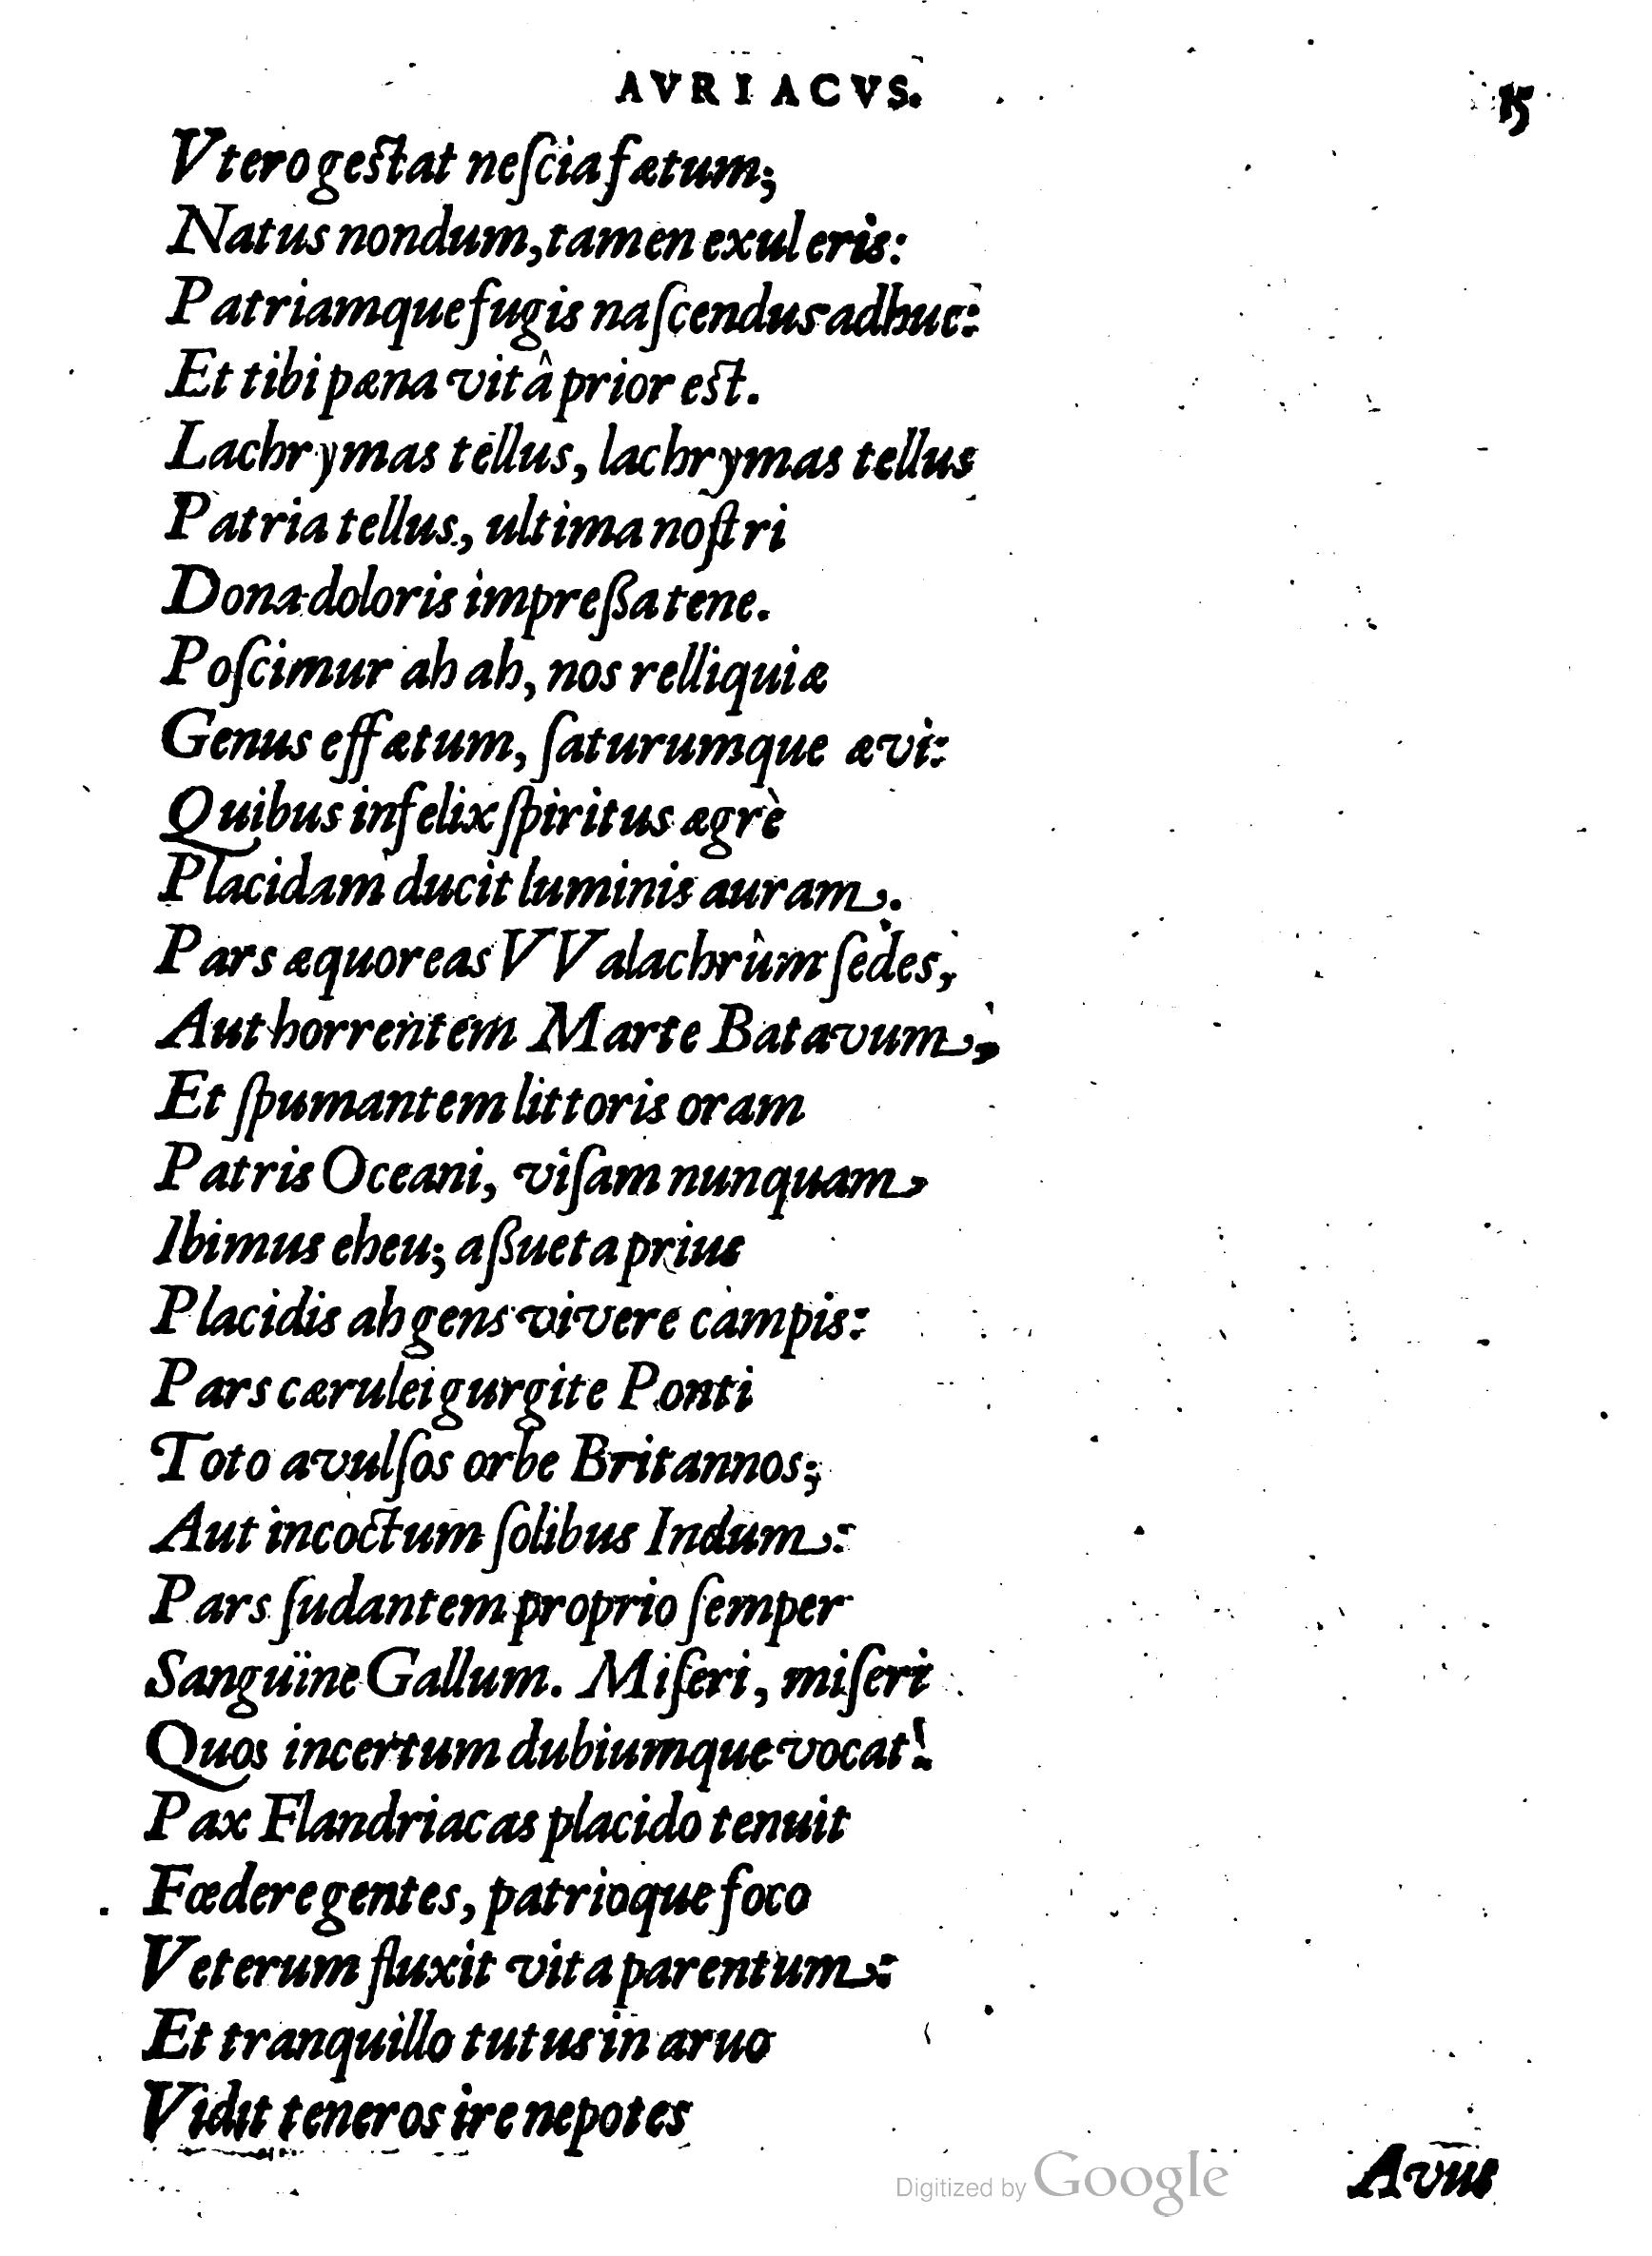 AVRIACVS. 15
Vtero gestat neſcia fætum;
Natus nondum, tamen exul eris:
Patriamque fugis naſcendus adhuc:
Et tibi pæna vitâ prior est.
Lachrymas tellus, lachrymas tellus
Patria tellus, ultima noſtri
Dona doloris impreßa tene.
Poſcimur ah ah, nos relliquiæ
Genus effætum, ſaturumque ævi:
Quibus infelix ſpiritus ægrè
Placidam ducit luminis auram.
Pars æquoreas VValachrûm ſedes,
Aut horrentem Marte Batavum,
Et ſpumantem littoris oram
Patris Oceani, viſam nunquam
Ibimus eheu; aßueta prius
Placidis ah gens vivere campis:
Pars cærulei gurgite Ponti
Toto avulſos orbe Britannos;
Aut incoctum ſolibus Indum:
Pars ſudantem proprio ſemper
Sanguïne Gallum. Miſeri, miſeri
Quos incertum dubiumque vocat!
Pax Flandriacas placido tenuit
Fœdere gentes, patrioque foco
Veterum fluxit vita parentum:
Et tranquillo tutus in aruo
Vidit teneros ire nepotes
Avus
Digitized by Google